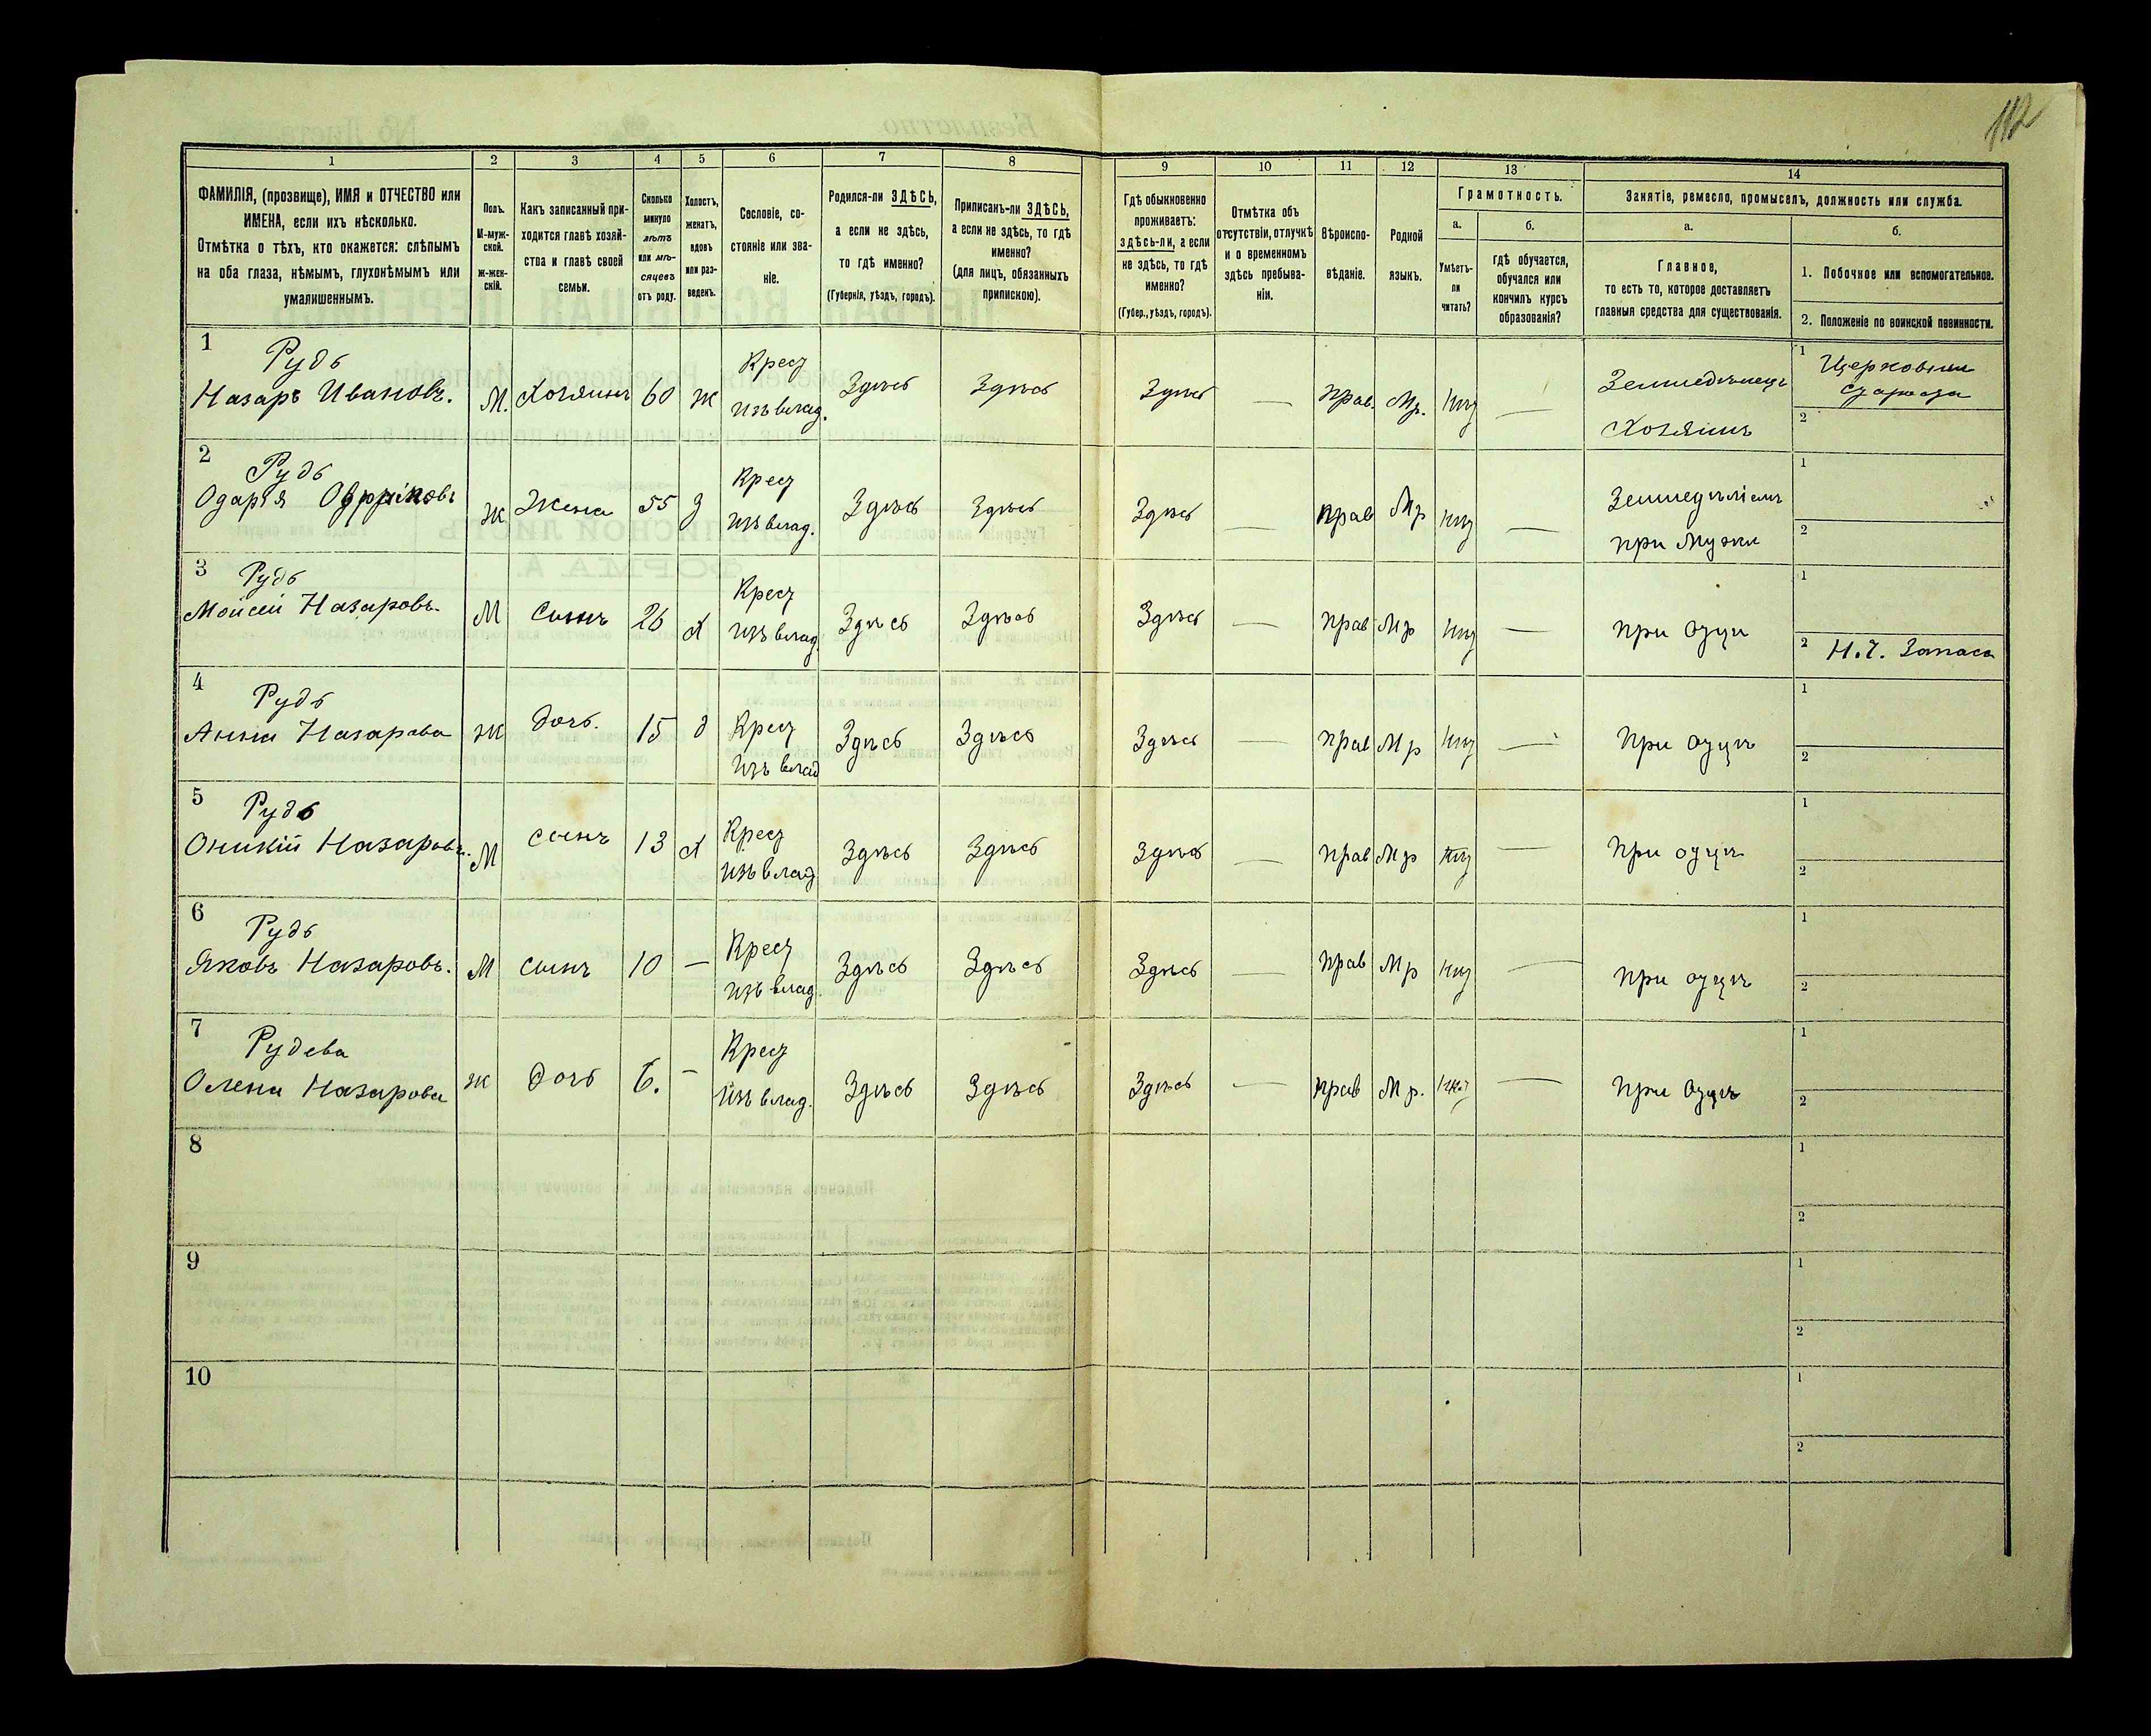 112
1 2 3 4 5 6 7 8 9 10 11 12 13 14
ФАМИЛІЯ, (прозвище), ИМЯ и ОТЧЕСТВО или
ИМЕНА, если ихъ нѣсколько.
Отмѣтка о тѣхъ, кто окажется: слѣпымъ
на оба глаза, нѣмымъ, глухонѣмымъ или
умалишеннымъ.
Полъ.
М-муж-
ской.
Ж-жен-
скій.
Какъ записанный при-
ходится главѣ хозяй-
ства и главѣ своей
семьи.
Сколько
минуло
лѣтъ
или мѣ-
сяцевъ
отъ роду.
Холостъ,
женатъ,
вдовъ
или раз-
веденъ.
Сословіе, со-
стояніе или зва-
ніе.
Родился-ли ЗДѢСЬ,
а если не здѣсь,
то гдѣ именно?
(Губернія, уѣздъ, городъ).
Приписанъ-ли ЗДѢСЬ,
а если не здѣсь, то гдѣ
именно?
(для лицъ, обязанныхъ
припискою).
Гдѣ обыкновенно
проживаетъ:
здѣсь-ли, а если
не здѣсь, то гдѣ
именно?
(Губер., уѣздъ, городъ).
Отмѣтка объ
отсутствіи, отлучкѣ
и о временномъ
здѣсь пребыва-
ніи.
Вѣроиспо-
вѣданіе.
Родной
языкъ.
Грамотность.
а.
Умѣетъ-
ли
читать?
б.
гдѣ обучается,
обучался или
кончилъ курсъ
образованія?
Занятіе, ремесло, промыселъ, должность или служба.
а.
Главное,
то есть то, которое доставляетъ
главныя средства для существованія.
б.
1. Побочное или вспомогательное.
2. Положеніе по воинской повинности.
1 Рудь
Назаръ Ивановъ. М. Хозяинъ 60 Ж Крест изъ влад. Здѣсь Здѣсь Здѣсь — прав. Мр. нѣт — Земледѣлецъ Хозяинъ
1 Церковный староста
2
2 Рудь
Одарія Ж Жена 55 з Крест изъ влад. Здѣсь Здѣсь Здѣсь — прав Мр нѣт — Земледѣліемъ при Мужи
1
2
3 Рудь
Мойсей Назаровъ. М Сынъ 26 х Крест изъ влад. Здѣсь Здѣсь Здѣсь — прав Мр нѣт — при отци
1
2 Н.Ч. Запаса
4 Рудь
Анна Назарова Ж дочь. 15 д Крест изъ влад Здѣсь Здѣсь Здѣсь — прав Мр нѣт — При отцѣ
1
2
5 Рудь
Оникій Назаровъ. М сынъ 13 х Крест изъ влад Здѣсь Здѣсь Здѣсь — прав Мр нѣт — При отцѣ
1
2
6 Рудь
Яковъ Назаровъ. М сынъ 10 — Крест изъ влад. Здѣсь Здѣсь Здѣсь — прав Мр нѣт — при отцѣ
1
2
7 Рудева
Олена Назарова Ж дочь 6. — Крест изъ влад. Здѣсь Здѣсь Здѣсь — прав Мр. нѣт — при отцѣ
1
2
8
1
2
9
1
2
10
1
2